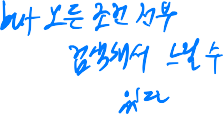 모든 조건 전부
검색해서 느낄 수
있다